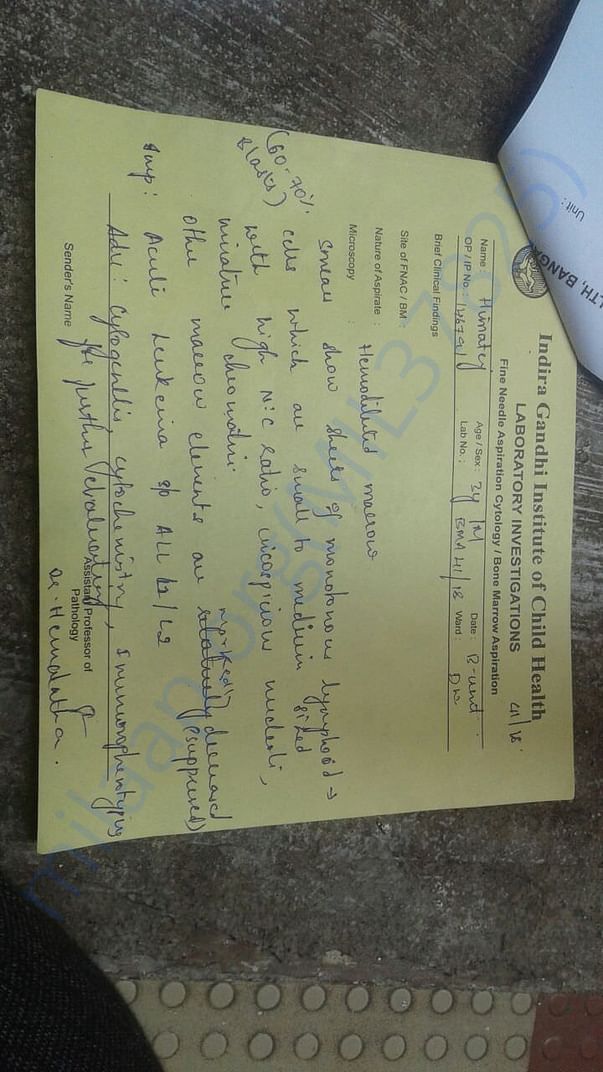 Unit :
LTH, BANGA
Indira Gandhi Institute of Child Health
LABORATORY INVESTIGATIONS 41/18
Fine Needle Aspiration Cytology / Bone Marrow Aspiration
Name : Age / Sex : 2y / M Date : B-unit
OP / IP No. : Lab No. : BMA 41/18 Ward :
Brief Clinical Findings
Site of FNAC / BM :
Nature of Aspirate : Hemodiluted marrow
Microscopy :
Smear show sheets of monotonous lymphoid →
(60-70% blasts) cells which are small to medium sized
with high N:C ratio, nucleoli,
chromatin.
Other marrow elements are markedly decreased
(suppressed)
Imp : Acute Leukemia ALL
Adv : Cytogenetics, cytochemistry, immunophenotyping
for further
Sender's Name
Assistant Professor of
Pathology
Dr. Hemalatha.
milaap.org(MIL37925)